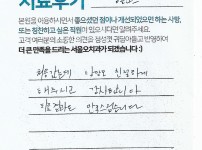 치료후기
본원을 이용하시면서 좋으셨던 점이나 개선되었으면 하는 사항,
또는 칭찬하고 싶은 직원이 있으시다면 알려주세요.
고객 여러분의 소중한 의견을 정성껏 귀담아듣고 반영하여
더 큰 만족을 드리는 서울오직과가 되겠습니다 :)
처음 갔는데 사람도 친절하게
해주시고 감사합니다
치료 결과는 만족스럽습니다